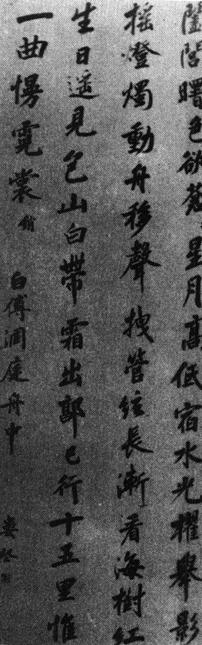 閶閭曙色欲蒼〻星月高低宿水光櫂舉影
搖燈燭動舟移聲拽管絃長漸看海樹紅
生日遙見包山白帶霜出郭已行十五里惟
一曲慢霓裳 消 白傅洞庭舟中 婁堅